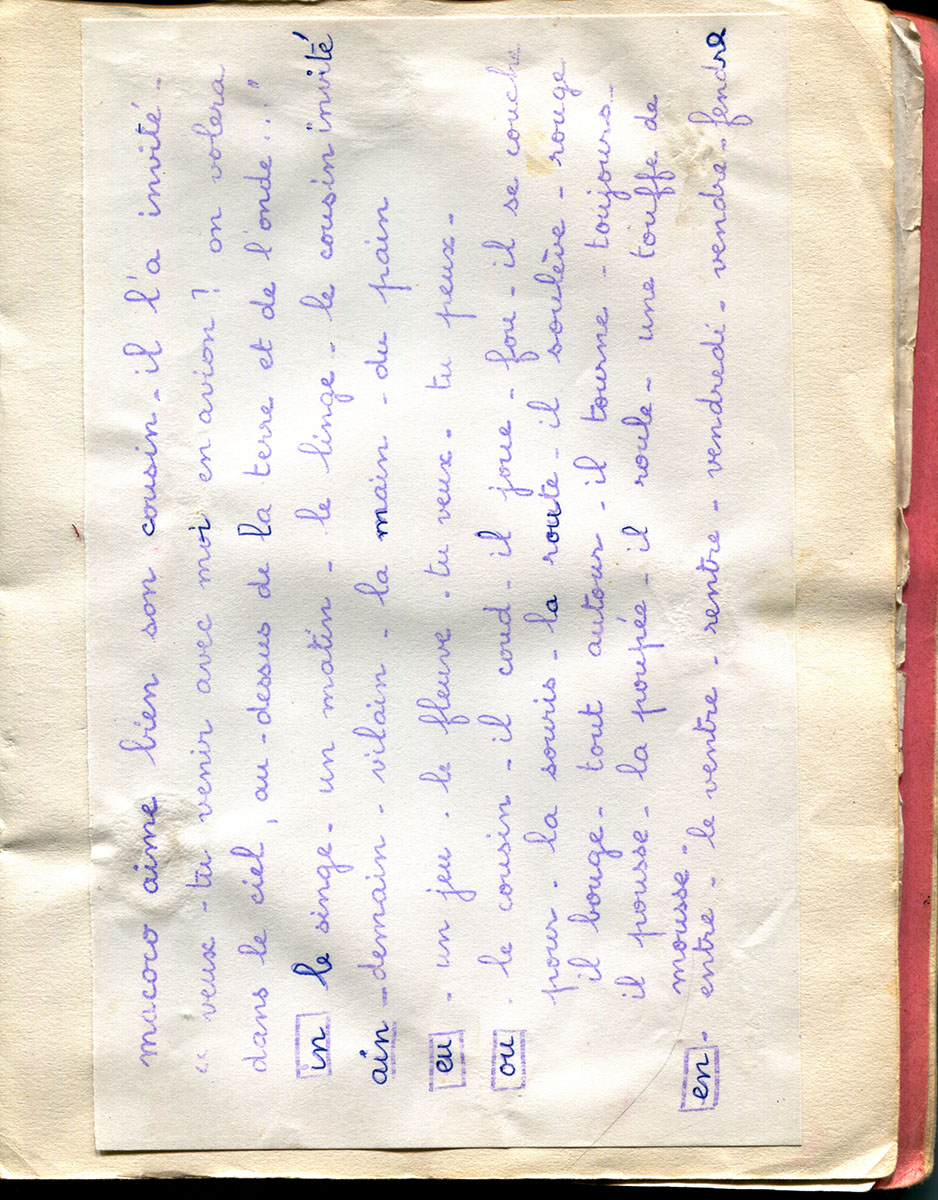 macoco aime bien son cousin - il l'a invité -
" veux - tu venir avec moi en avion ? on volera
dans le ciel, au - dessus de la terre et de l'onde.."
in le singe - un matin - le linge - le cousin invité
ain - demain - vilain - la main - du pain
eu - un jeu - le fleuve - tu veux - tu peux -
ou - le cousin - il coud - il joue - fou - il se couche
pour - la souris - la route - il soulève - rouge
il bouge - tout autour - il tourne - toujours -
il pousse - la poupée - il roule - une touffe de
mousse -
en - entre - le ventre - rentre - vendredi - vendre - fendre